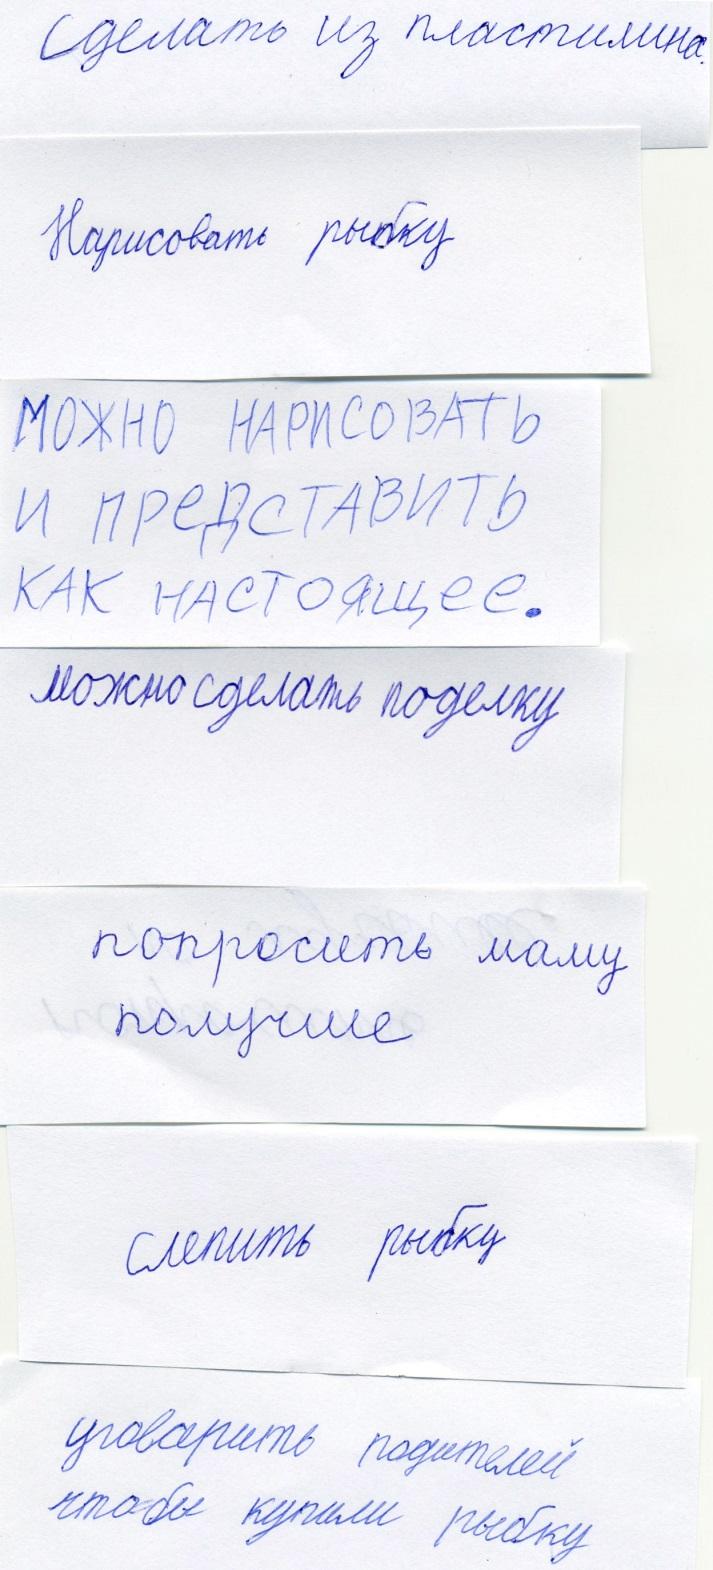 Сделать из пластилина.
Нарисовать рыбку
МОЖНО НАРИСОВАТЬ
И ПРЕДСТАВИТЬ
КАК НАСТОЯЩЕЕ.
можно сделать поделку
попросить маму
получше
слепить рыбку
уговарить родителей
чтобы купили рыбку